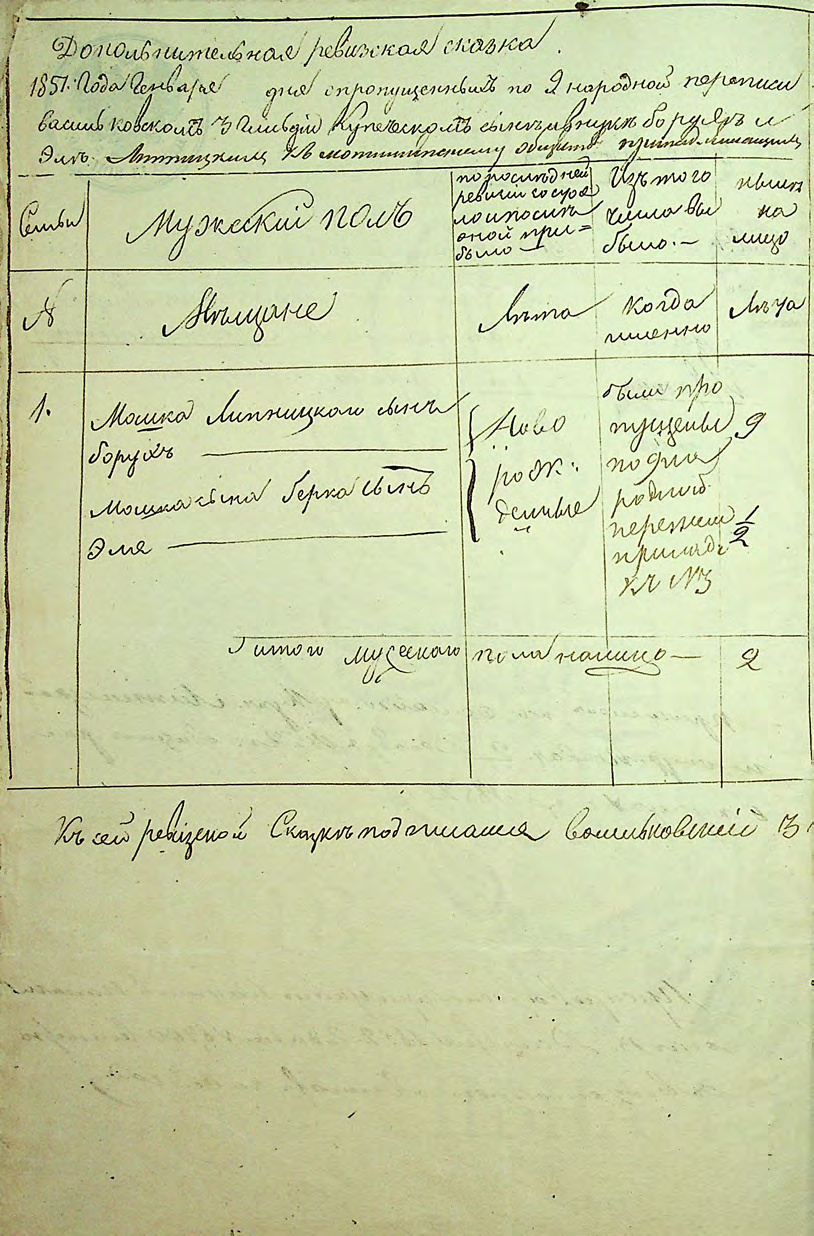 Дополнительная ревизская сказка.
1851: Года Генваря дня о пропущенныхъ по 9 народной переписи
васильковскомъ 3 гильдіи купеческомъ сынъ борухъ и
Эля Липницкихъ къ обществу
Семьи
Мужескій полъ
по последней
ревизіи состоя
ло и послѣ
оной при=
было
Изъ того
числа вы
было. —
нынѣ
на
лицо
№
Мѣщане
Лѣта
Когда
именно
Лѣта
1.
Мошка Липницкого сынъ
борухъ
Мошка сына берка сынъ
Эля
Ново
рож:
денные
были про
пущены
по 9 на
родной
переписи
къ №3
9
1/2
Итого мужеского пола налицо — 2
Къ сей ревизской Сказкѣ подписался Васильковскій 3